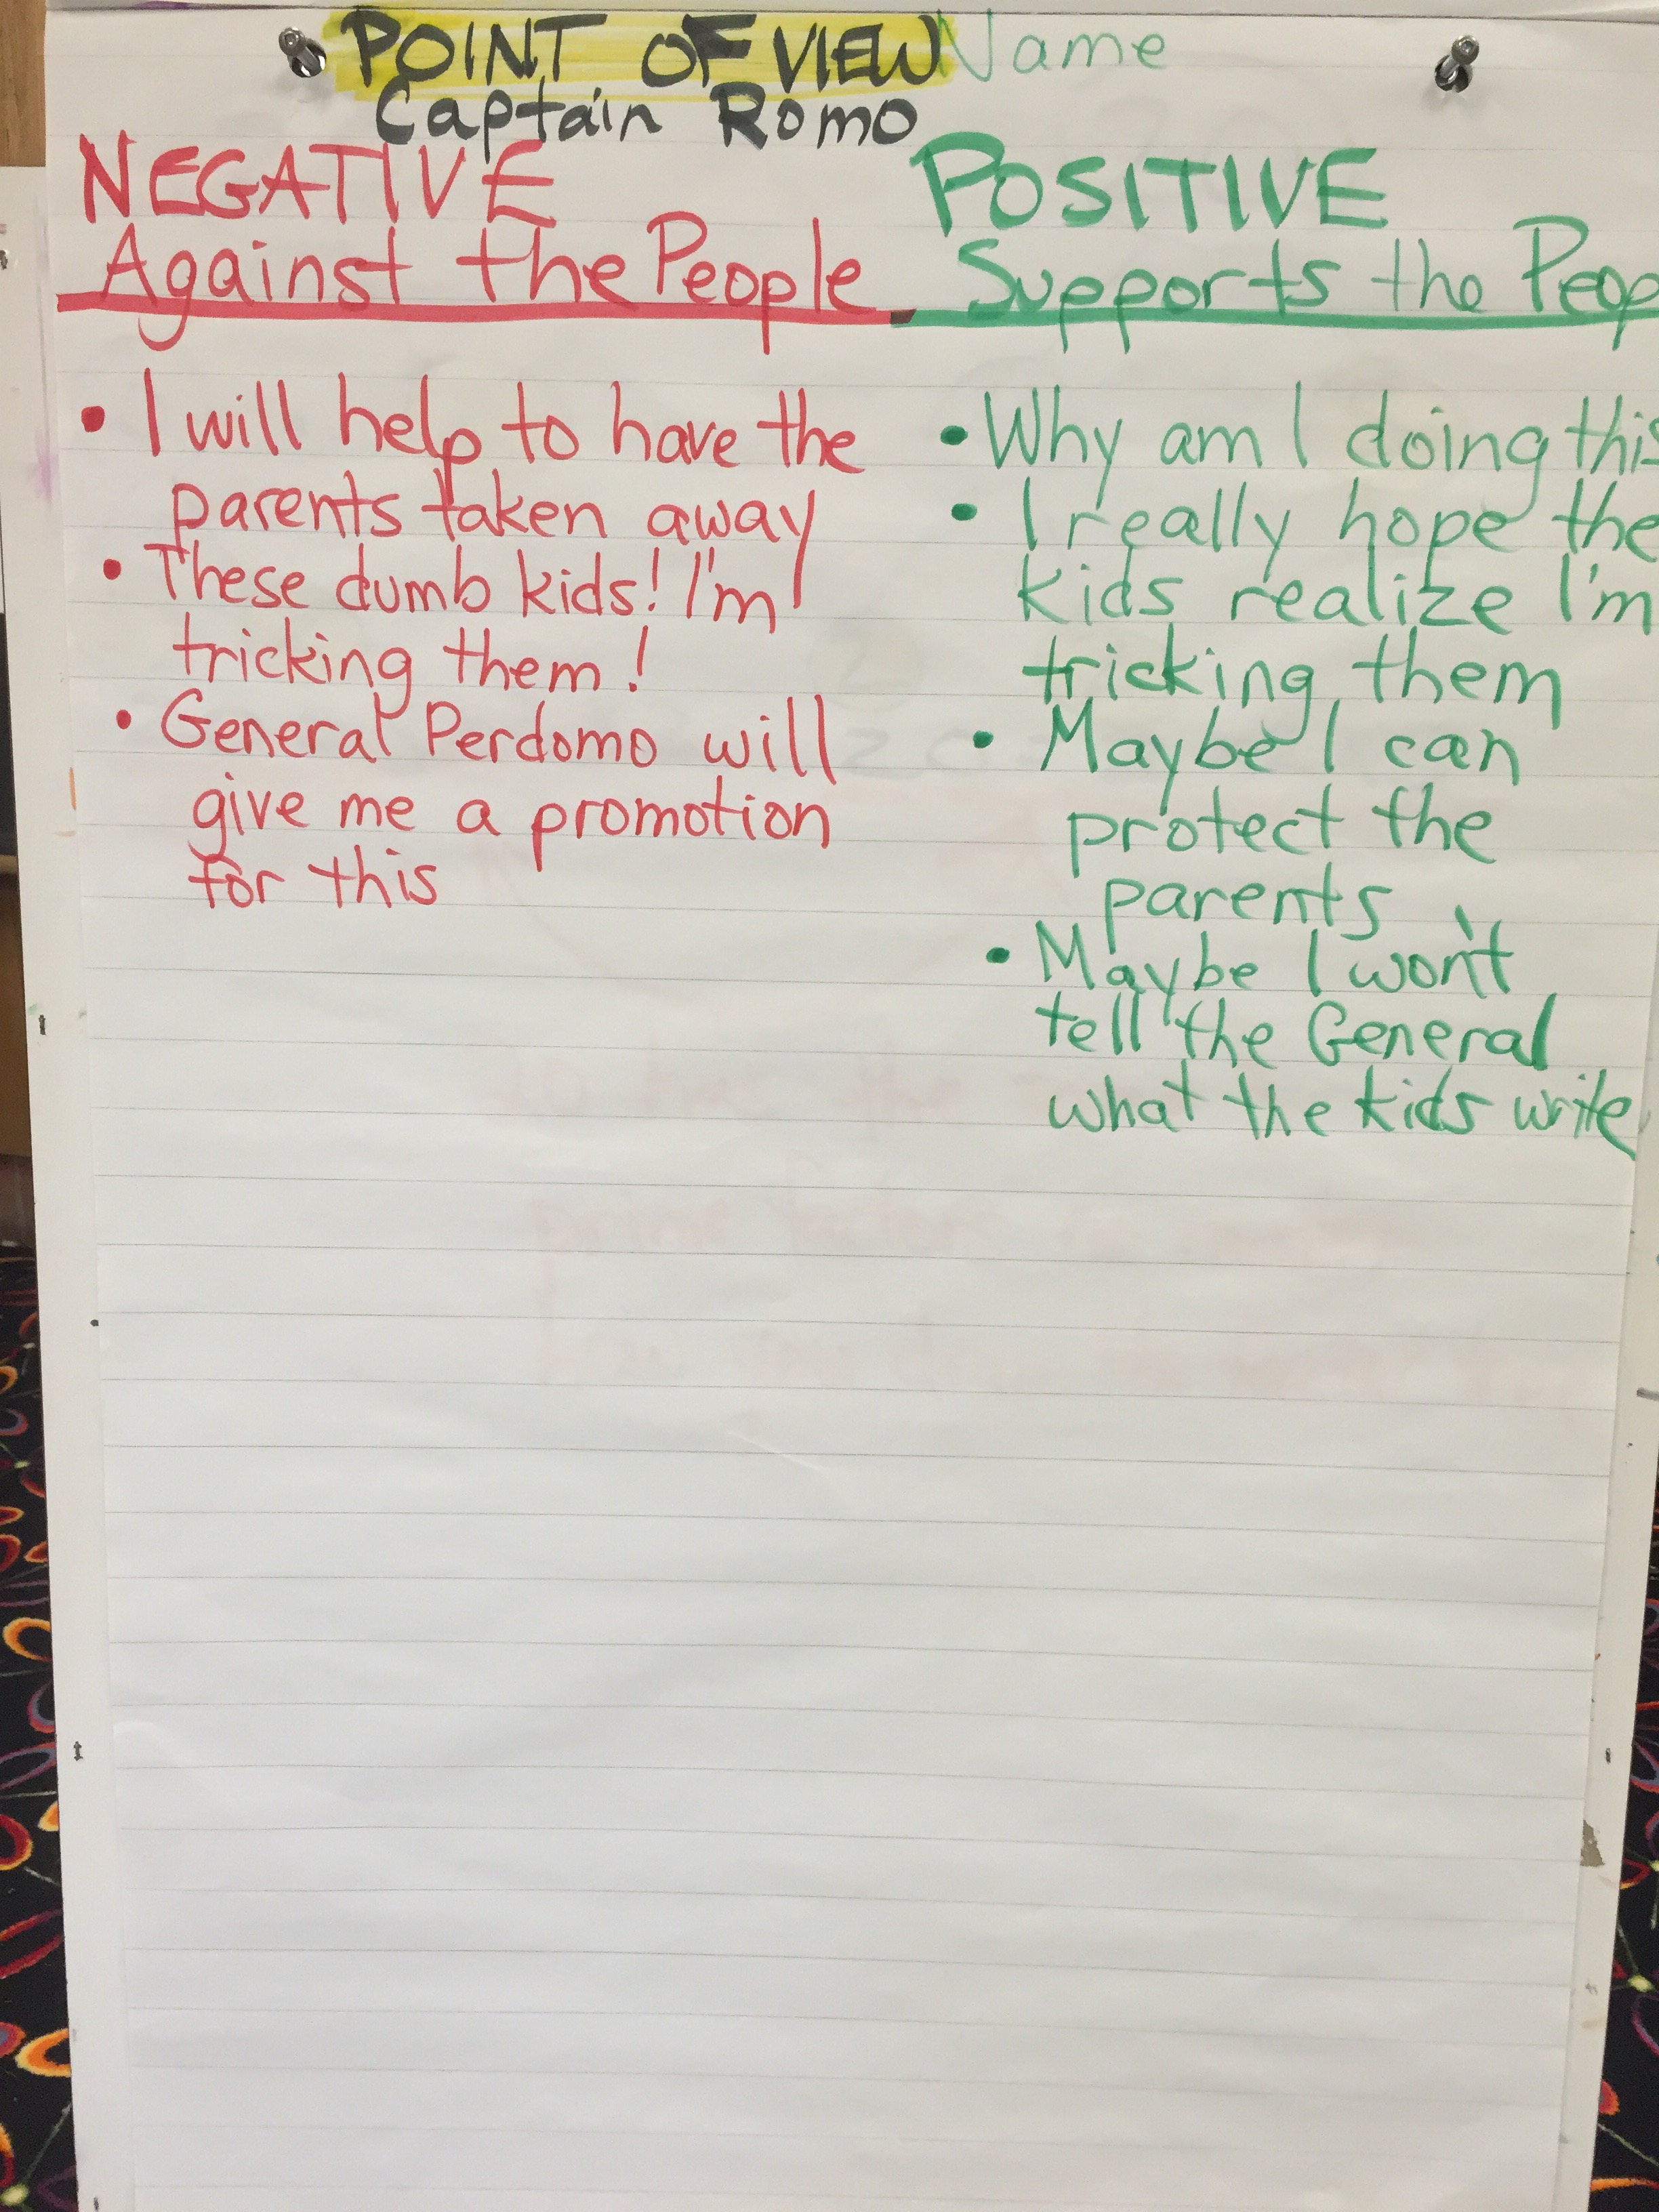 POINT OF VIEW Name
Captain Romo
NEGATIVE
Against the People
• I will help to have the
parents taken away
• These dumb kids! I'm
tricking them!
• General Perdomo will
give me a promotion
for this
POSITIVE
Supports the Peop
• Why am I doing this
• I really hope the
kids realize I'm
tricking them
• Maybe I can
protect the
parents
• Maybe I won't
tell the General
what the kids write